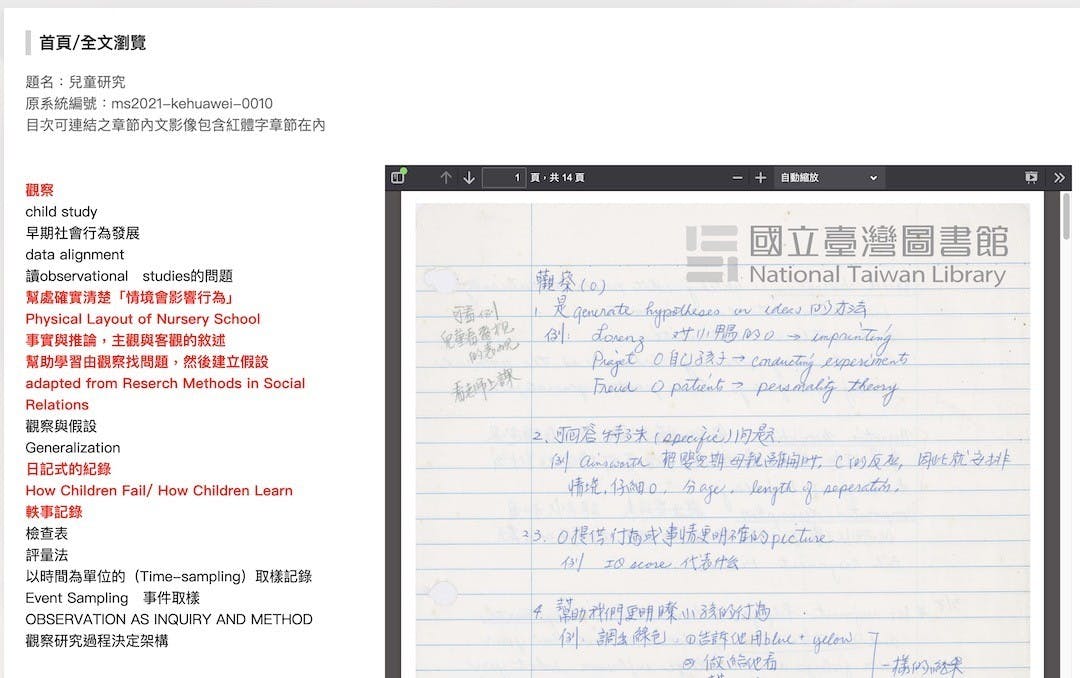 首頁/全文瀏覽
題名：兒童研究
原系統編號：ms2021-kehuawei-0010
目次可連結之章節內文影像包含紅體字章節在內
觀察
child study
早期社會行為發展
data alignment
讀observational studies的問題
幫處確實清楚「情境會影響行為」
Physical Layout of Nursery School
事實與推論，主觀與客觀的敘述
幫助學習由觀察找問題，然後建立假設
adapted from Reserch Methods in Social
Relations
觀察與假設
Generalization
日記式的紀錄
How Children Fail/ How Children Learn
軼事記錄
檢查表
評量法
以時間為單位的（Time-sampling）取樣記錄
Event Sampling 事件取樣
OBSERVATION AS INQUIRY AND METHOD
觀察研究過程決定架構
1 頁，共 14 頁
自動縮放
國立臺灣圖書館
National Taiwan Library
觀察(O)
1. 是generate hypotheses or ideas的方法
例: Lorenz 對小鴨的O → imprinting
Piajet O自己孩子→ conducting experiments
Freud O patients → personality theory
看老師上課
2. 可回答特殊(specific)問題
例 Ainsworth 母親離開時, C的反應, 因此就安排
情境, 仔細O, 分age, length of seperation.
3. O提供行為或事情更明確的picture
例 IQ score 代表什么
4. 幫助我們更明瞭小孩的行為
例: 調出綠色, ①告訴他用blue + yelow
② 做給他看
一樣的結果